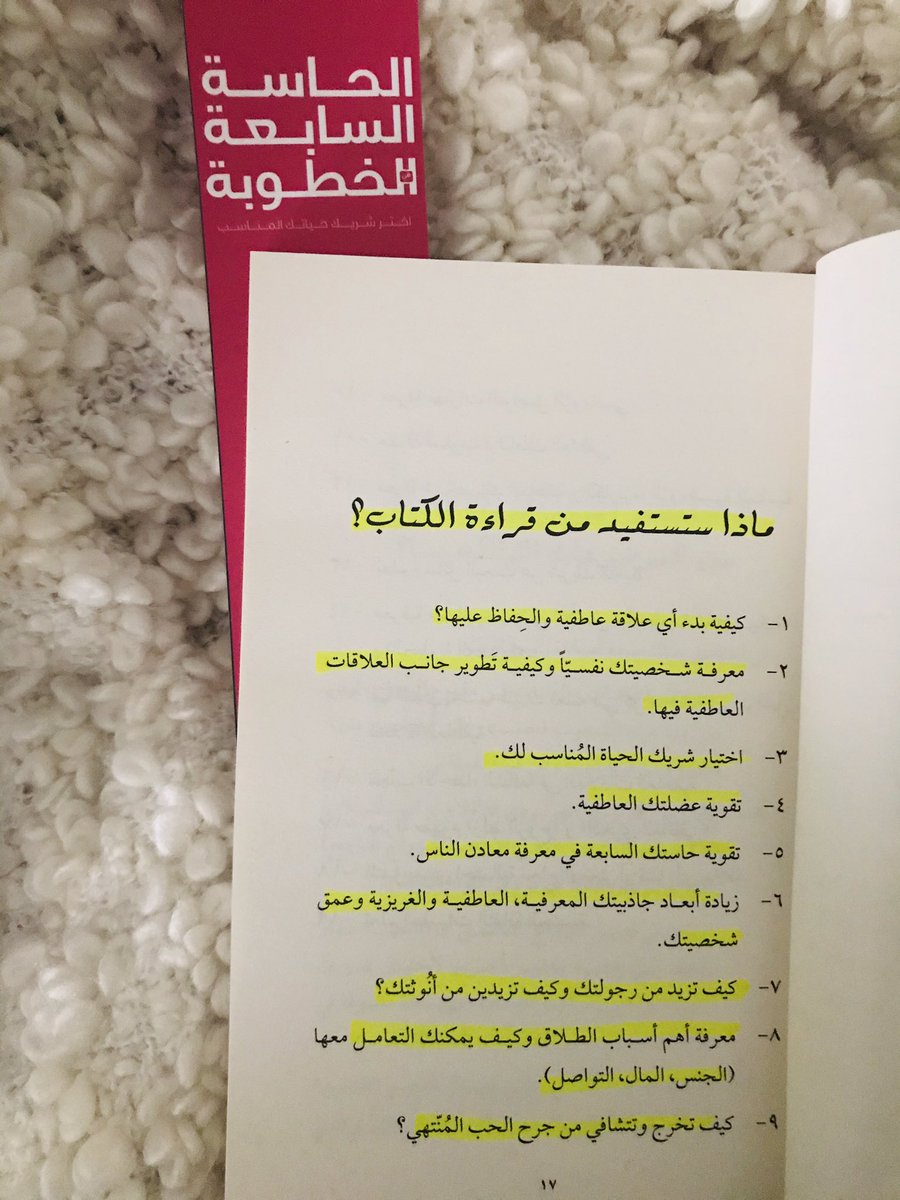 الحاسة
السابعة
في الخطوبة
اختر شريك حياتك المناسب
ماذا ستستفيد من قراءة الكتاب؟
١- كيفية بدء أي علاقة عاطفية والحِفاظ عليها؟
٢- معرفة شخصيتك نفسيّاً وكيفية تَطوير جانب العلاقات
العاطفية فيها.
٣- اختيار شريك الحياة المُناسب لك.
٤- تقوية عضلتك العاطفية.
٥- تقوية حاستك السابعة في معرفة معادن الناس.
٦- زيادة أبعاد جاذبيتك المعرفية، العاطفية والغريزية وعمق
شخصيتك.
٧- كيف تزيد من رجولتك وكيف تزيدين من أنُوثتك؟
٨- معرفة أهم أسباب الطلاق وكيف يمكنك التعامل معها
(الجنس، المال، التواصل).
٩- كيف تخرج وتتشافي من جرح الحب المُنّتهي؟
١٧